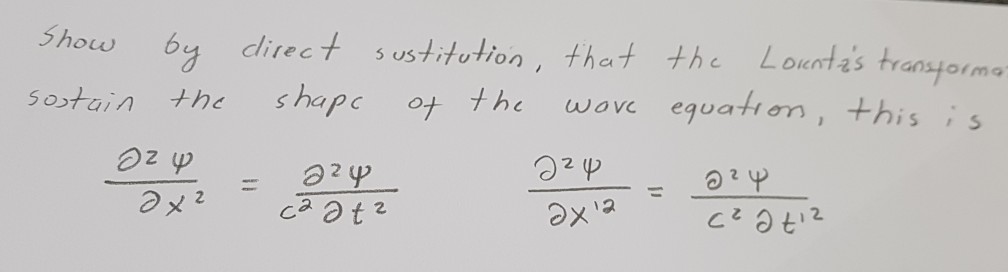 Show by direct sustitution, that the Lorentz's transforma
sostain the shape of the wave equation, this is
∂²ψ/∂x² = ∂²ψ/c²∂t² ∂²ψ/∂x'² = ∂²ψ/c²∂t'²